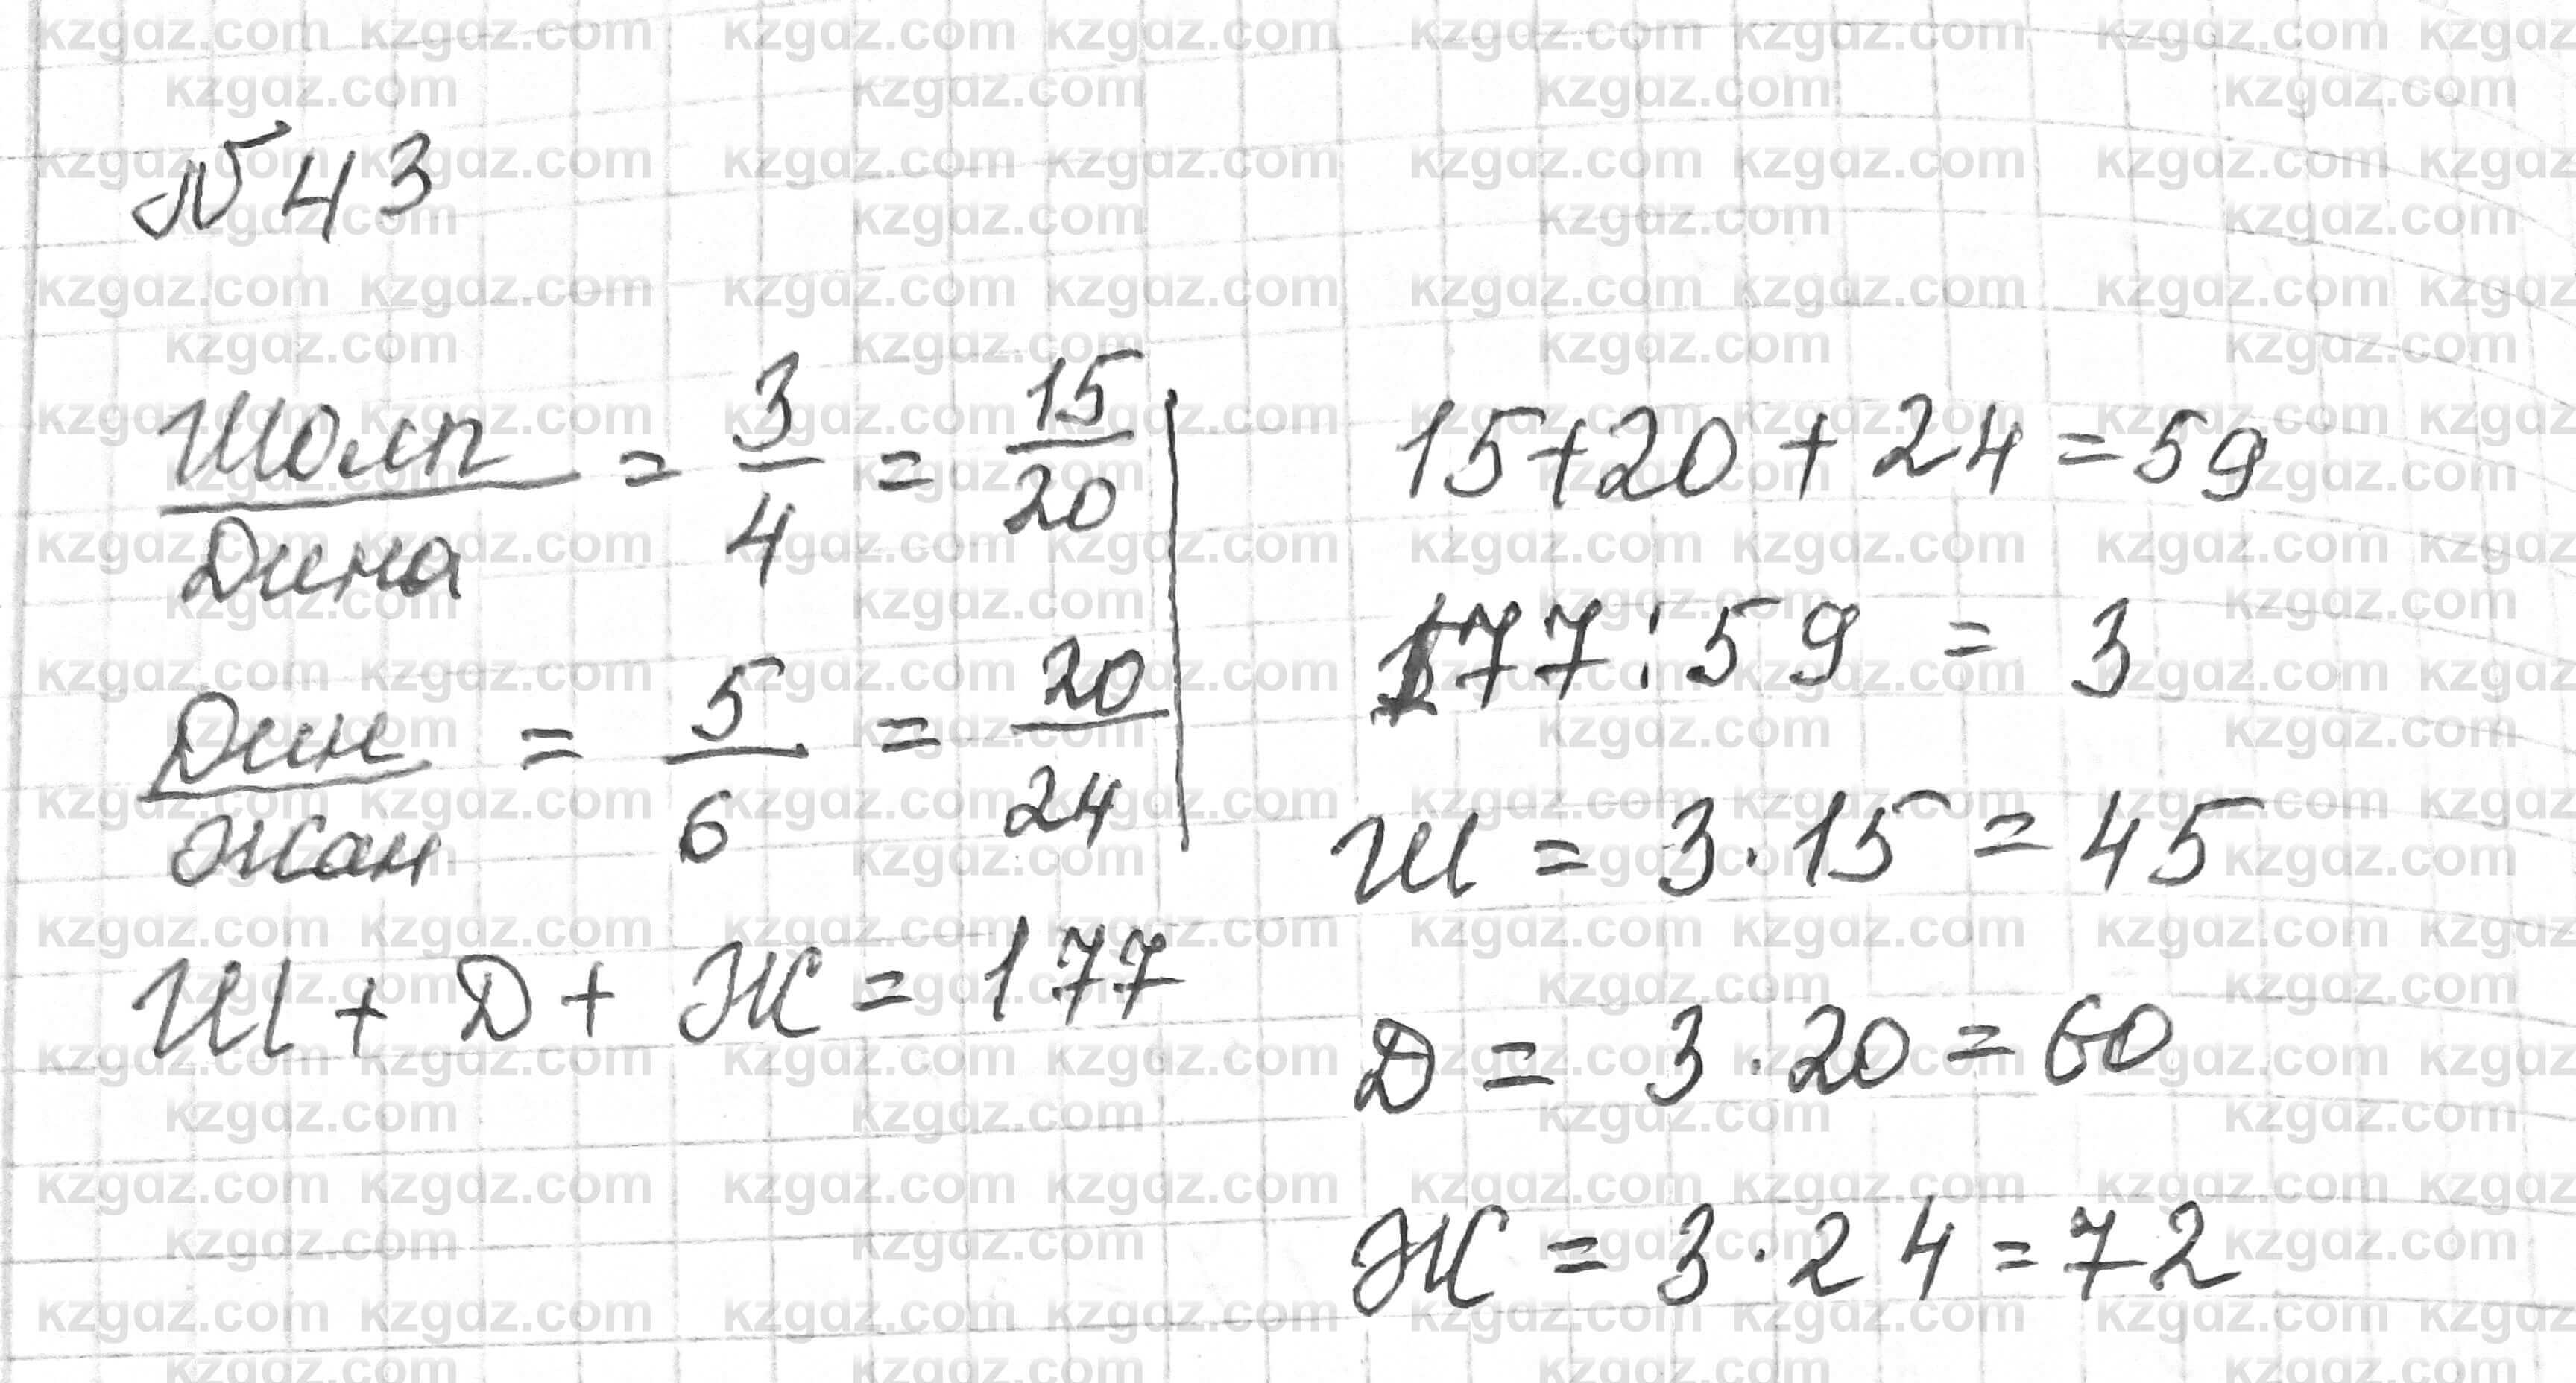 № 43
Шолп / Дина = 3/4 = 15/20
Дин / Жан = 5/6 = 20/24
Ш + Д + Ж = 177
15 + 20 + 24 = 59
177 : 59 = 3
Ш = 3 · 15 = 45
Д = 3 · 20 = 60
Ж = 3 · 24 = 72
kzgdz.com